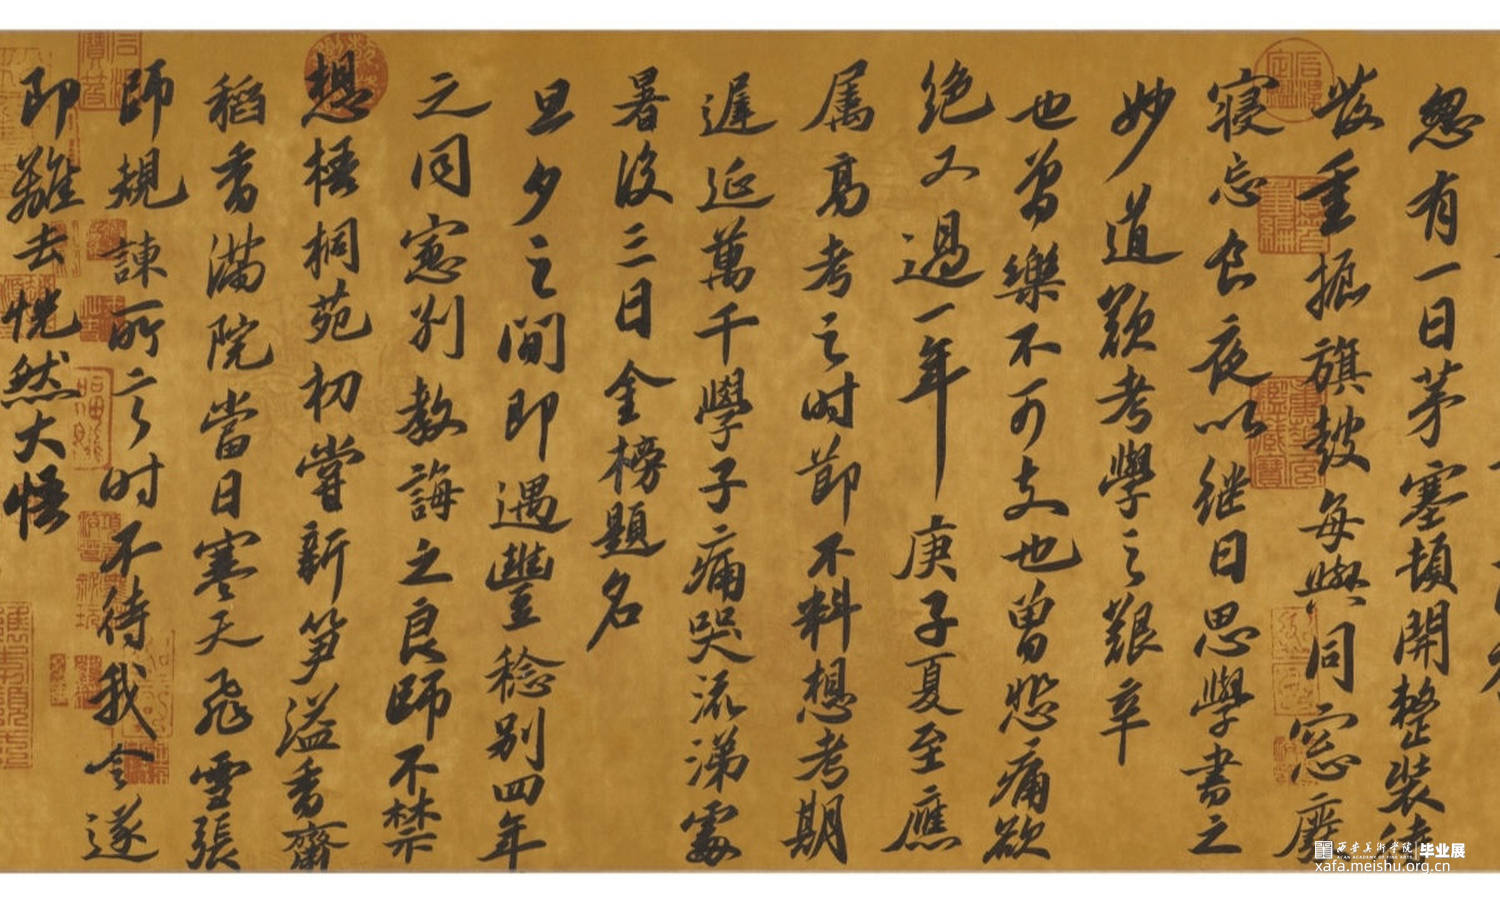 忽有一日茅塞頓開整裝待
發重振旗鼓每與同窓磨
寢忘食夜以继日思學書之
妙道歎考學之艱辛
也曾樂不可支也曾悲痛欲
绝又過一年庚子夏至應
属高考之时節不料想考期
遲延萬千學子痛哭流涕處
暑後三日金榜題名
旦夕之間即遇豐稔别四年
之同窓别教誨之良師不禁
想梧桐苑初嘗新笋溢香齋
稻香滿院當日寒天飛雪張
師規諫所言时不待我令遂
即離去恍然大悟
西安美術学院 毕业展
XI'AN ACADEMY OF FINE ARTS
xafa.meishu.org.cn